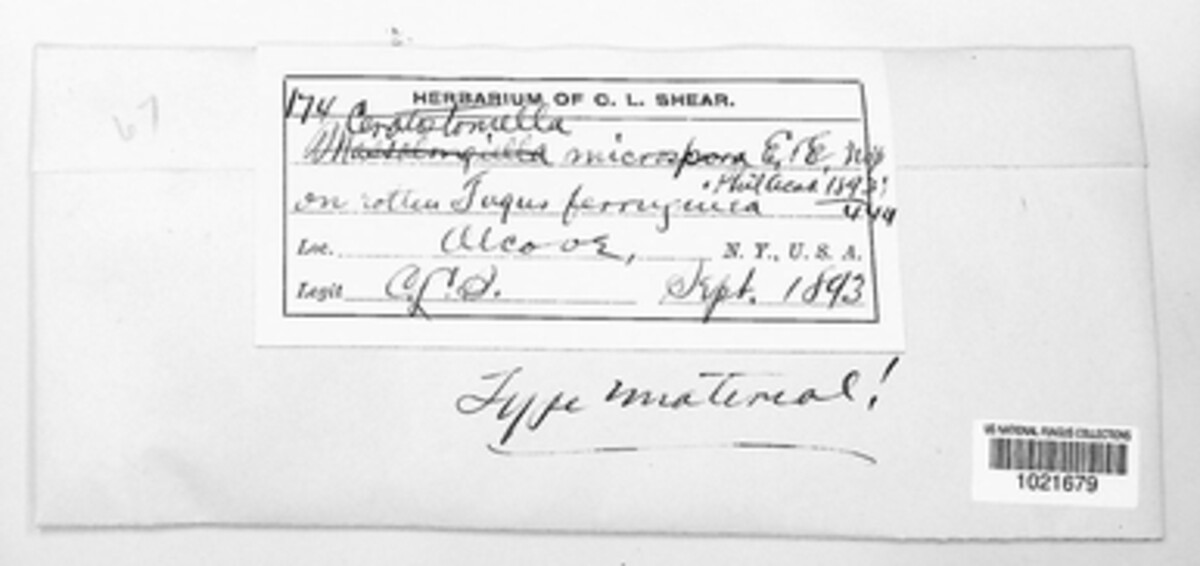 67
HERBARIUM OF C. L. SHEAR.
174 Ceratostomella
microspora E. & E.
Phil Acad 1893
on rotten Fagus ferruginea 444
Loc. Alcove, N. Y., U. S. A.
Legit C. L. S. Sept. 1893
Type material!
US NATIONAL FUNGUS COLLECTIONS
1021679